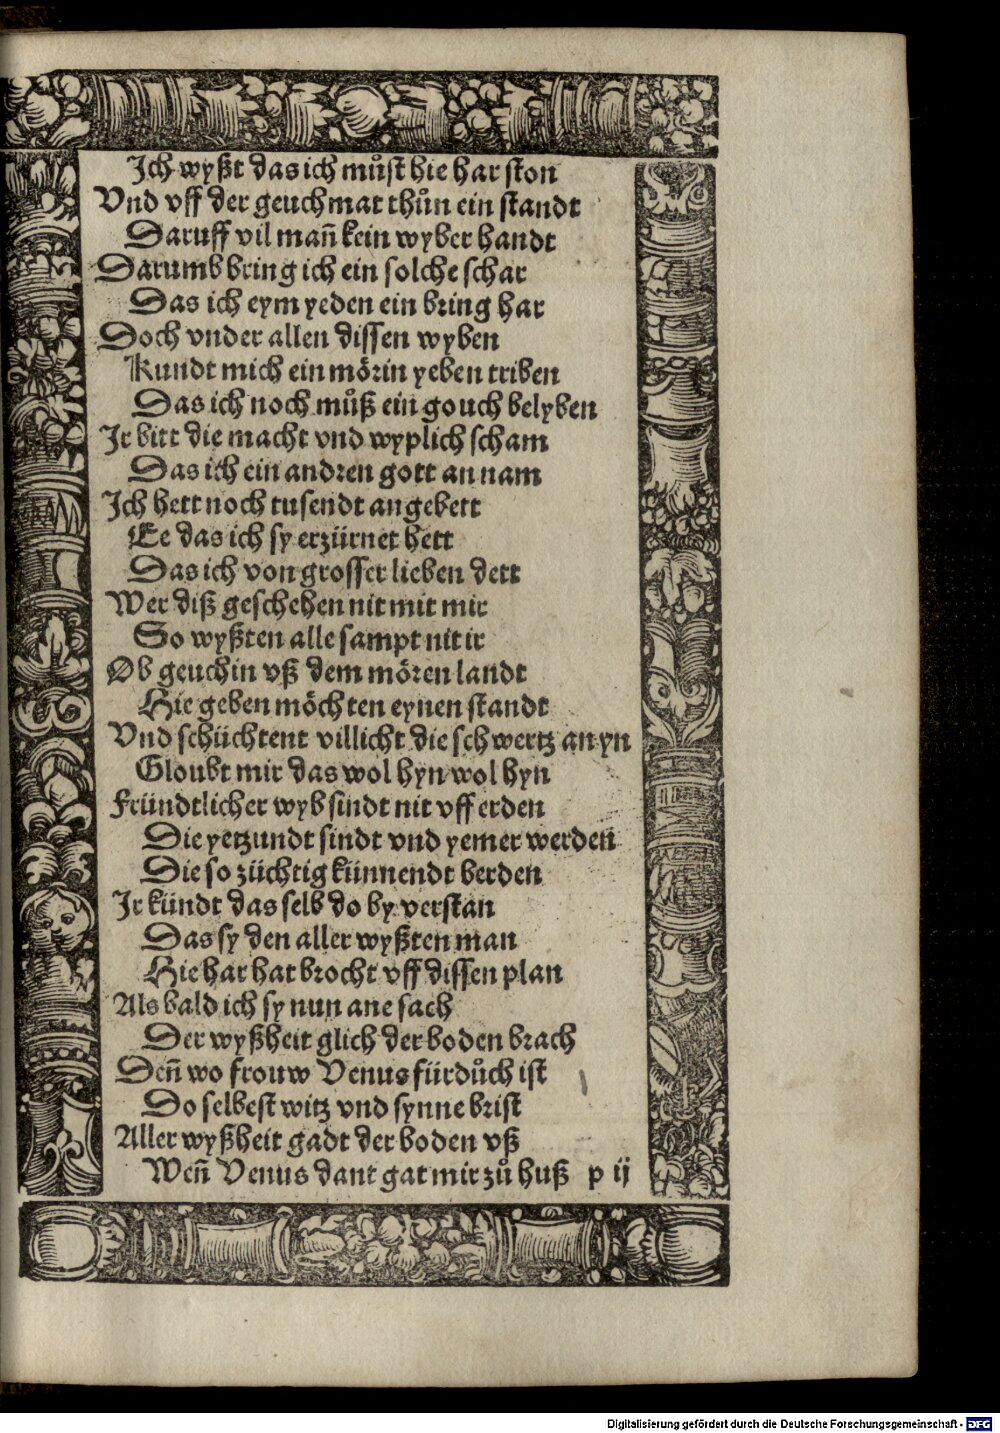 Ich wyßt das ich muͦst hie har ston
Vnd vff der geuchmat thuͦn ein standt
Daruff vil man̄ kein wyber handt
Darumb bring ich ein solche schar
Das ich eym yeden ein bring har
Doch vnder allen dissen wyben
Kundt mich ein mörin yeben triben
Das ich noch muͦß ein gouch belyben
Ir bitt die macht vnd wyplich scham
Das ich ein andren gott an nam
Ich hett noch tusendt angebett
Ee das ich sy erzürnet hett
Das ich von grosser lieben dett
Wer diß geschehen nit mit mir
So wyßten alle sampt nit ir
Ob geuchin vß dem mören landt
Hie geben möchten eynen standt
Vnd schüchtent villicht die schwertz an yn
Gloubt mir das wol hyn wol hyn
Fründtlicher wyb sindt nit vff erden
Die yetzundt sindt vnd yemer werden
Die so züchtig künnendt berden
Ir kündt das selb do by verstan
Das sy den aller wyßten man
Hie har hat brocht vff dissen plan
Als bald ich sy nun ane sach
Der wyßheit glich der boden brach
Den̄ wo frouw Venus fürduͦch ist
Do selbest witz vnd synne brist
Aller wyßheit gadt der boden vß
Wen̄ Venus dant gat mit zuͦ huß p ij
Digitalisierung gefördert durch die Deutsche Forschungsgemeinschaft - DFG